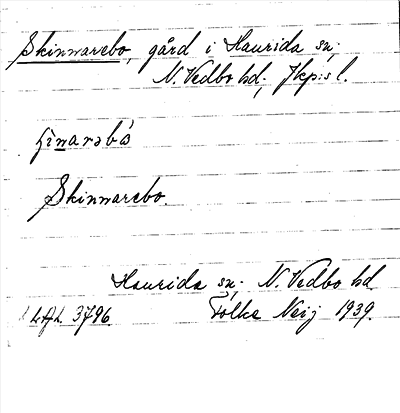 Skinnarebo, gård i Haurida sn;
N. Vedbo hd; Jkp:s l.
Skinnarebo.
Haurida sn; N. Vedbo hd
LAL 3796. Folke Neij 1939.